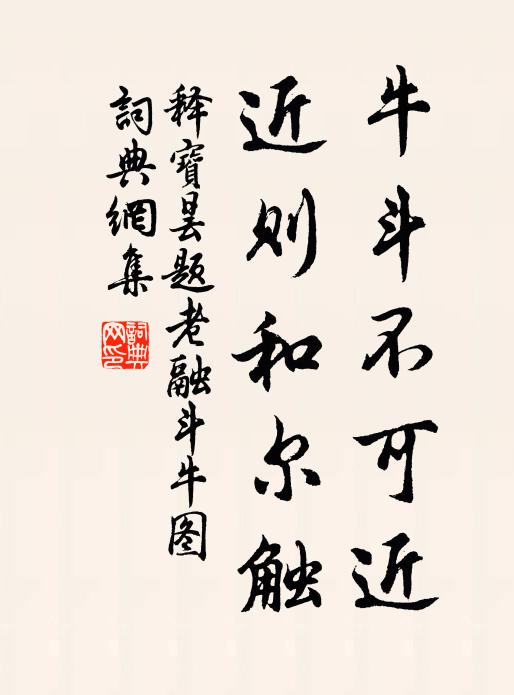 牛斗不可近
近则和尔触
释寶昙题老融斗牛图
詞典網集
詞典
网印